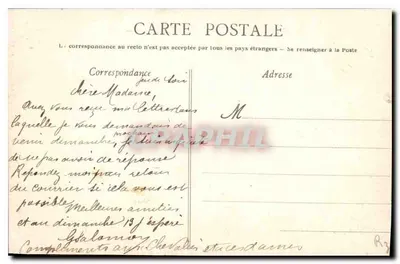 CARTE POSTALE
La correspondance au recto n'est pas acceptée par tous les pays étrangers - Se renseigner à la Poste
Correspondance
Adresse
jeudi soir
Chère Madame,
M
Avez vous reçu ma lettre dans
laquelle je vous demandais de
venir dimanche, je suis
de ne pas avoir de réponse
Repondez moi par retour
du courrier si cela vous est
possible
Meilleures amitiés
et au dimanche 13 j'espère
Compliments aux Chevalier et ces dames